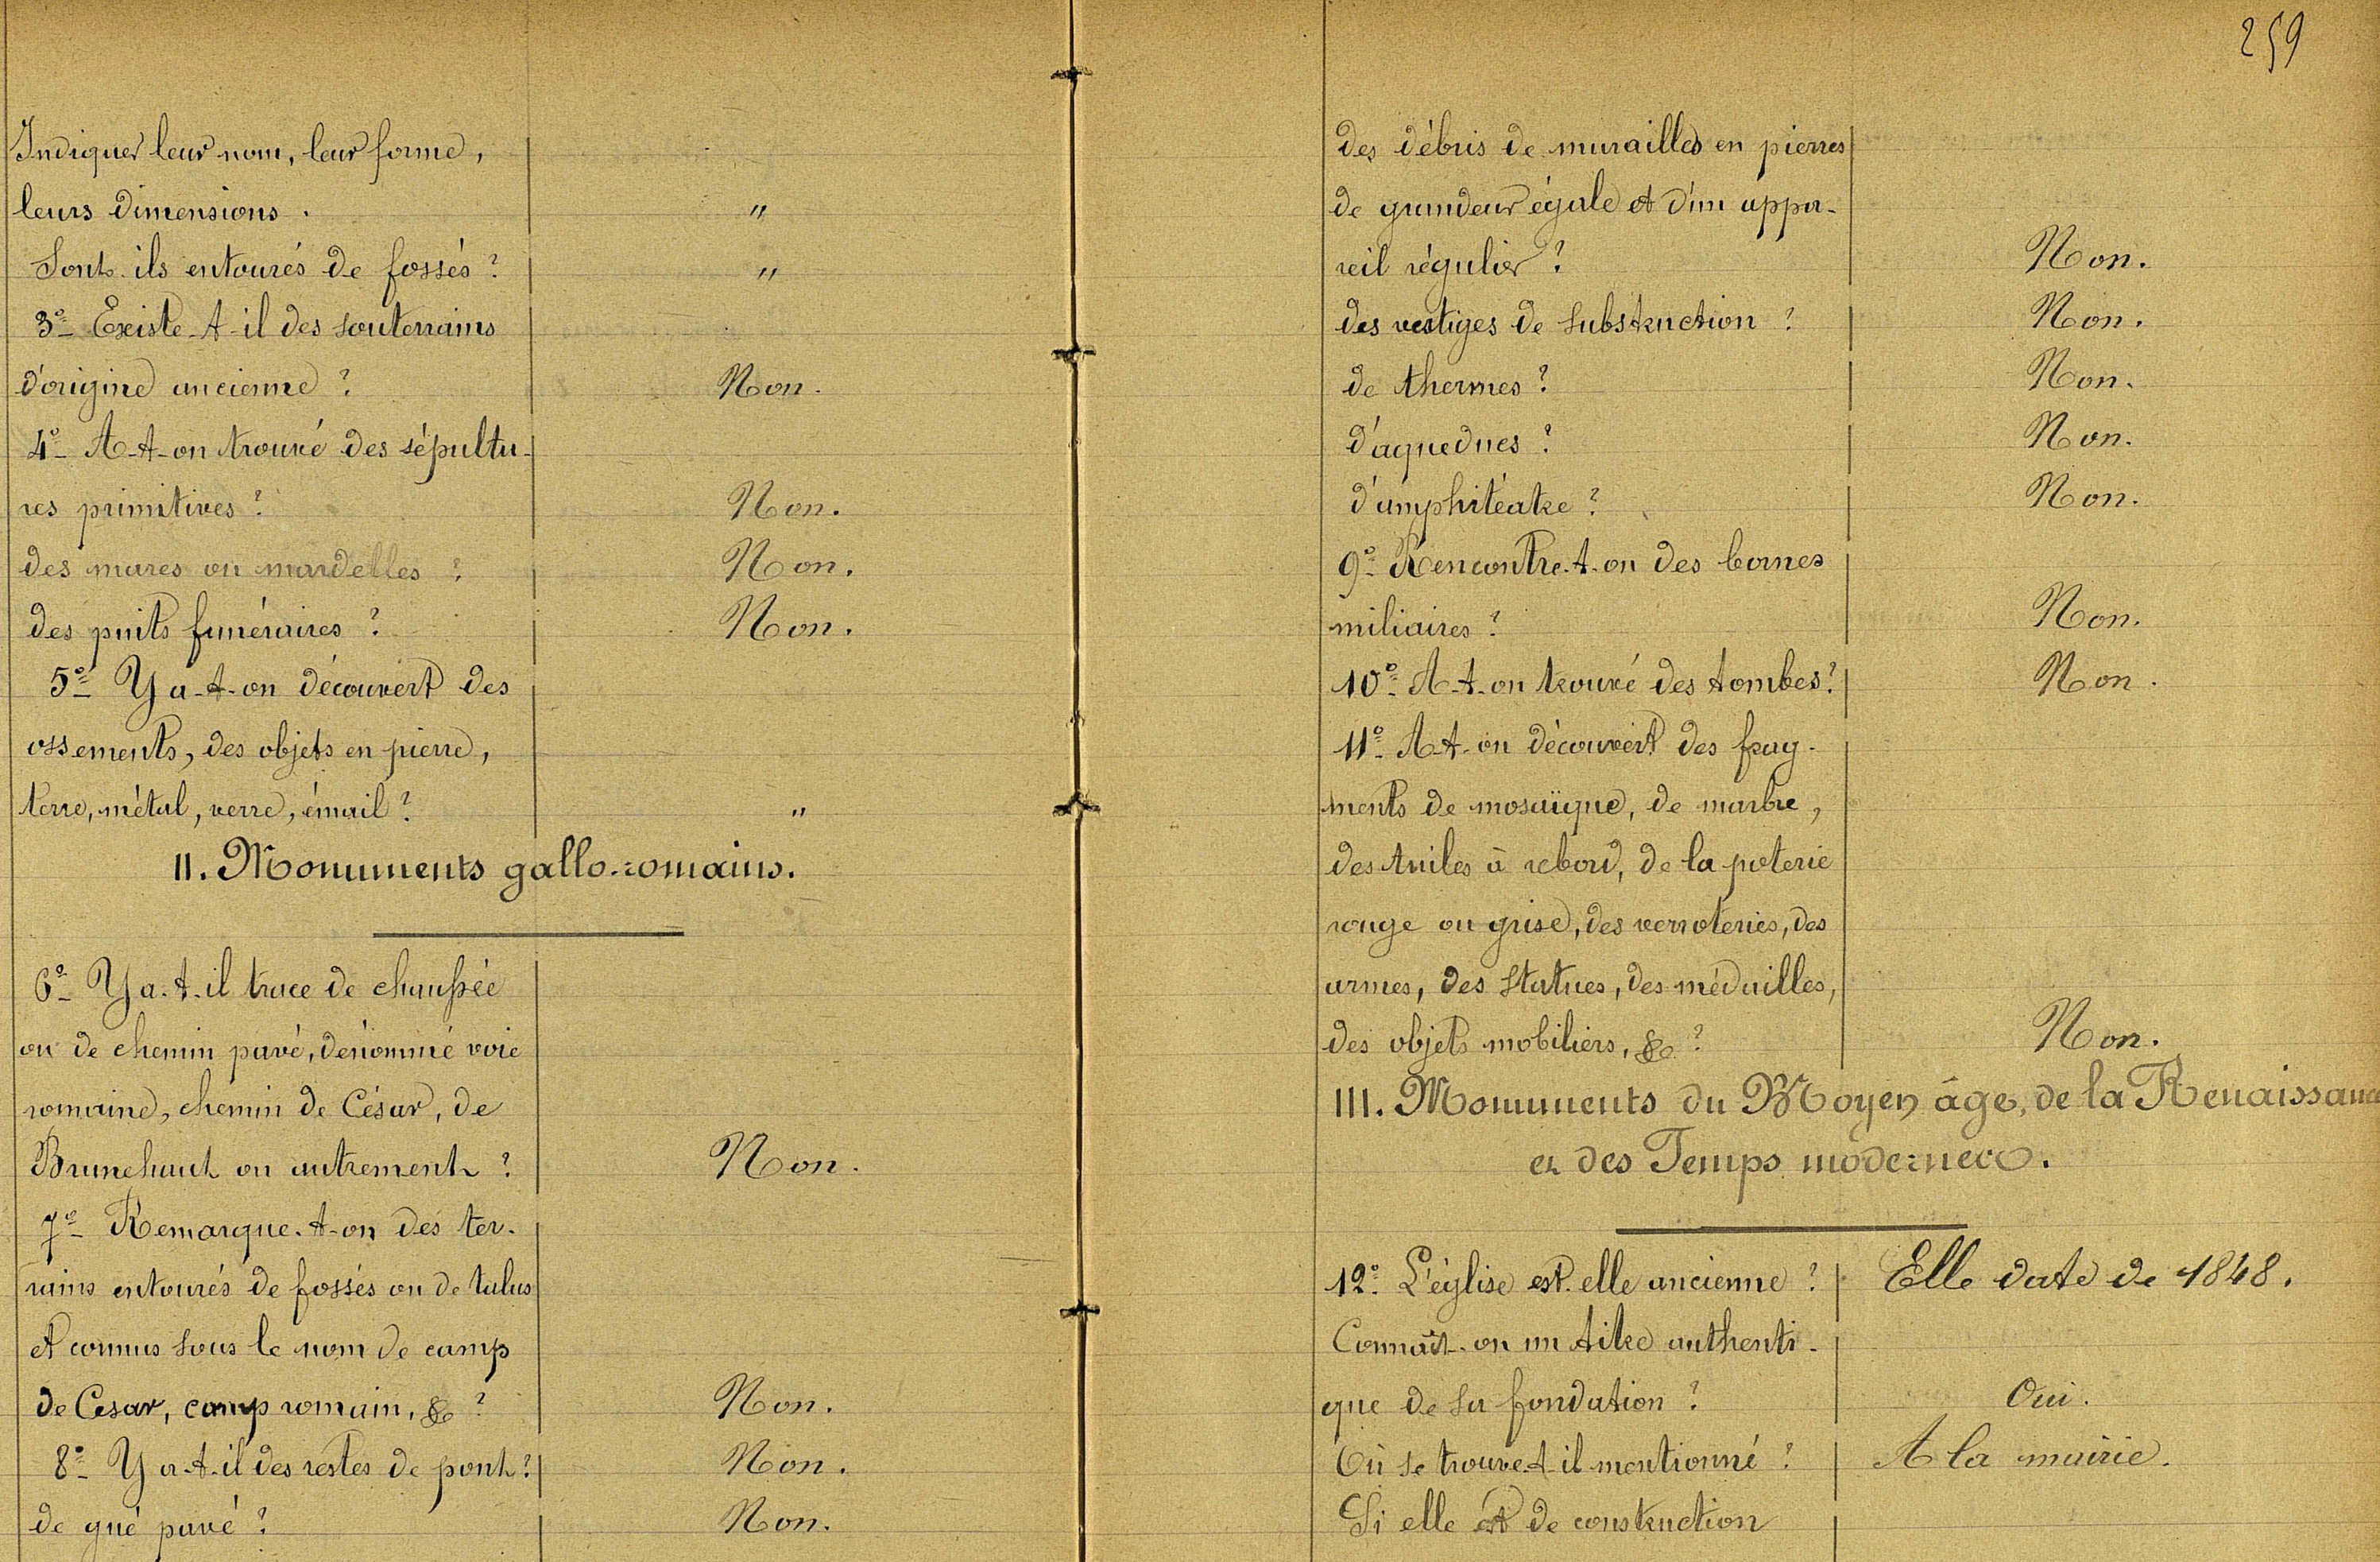 Indiquer leur nom, leur forme,
leurs dimensions. "
Sont-ils entourés de fossés? "
3º- Existe-t-il des souterrains
d'origine ancienne? Non.
4º- A-t-on trouvé des sépultu-
res primitives? Non.
des mares ou mardelles? Non.
des puits funéraires? Non.
5º- Y a-t-on découvert des
ossements, des objets en pierre,
terre, métal, verre, émail? "
II. Monuments gallo-romains.
6º- Y a-t-il trace de chaussée
ou de chemin pavé, dénommé voie
romaine, chemin de César, de
Brunehaut ou autrement? Non.
7º- Remarque-t-on des ter-
rains entourés de fossés ou de talus
et connus sous le nom de camp
de Cesar, camp romain, &? Non.
8º- Y a-t-il des restes de pont? Non.
de gué pavé? Non.
259
des débris de murailles en pierres
de grandeur égale et d'un appa-
reil régulier? Non.
des vestiges de substruction? Non.
de thermes? Non.
d'aqueducs? Non.
d'amphitéatre? Non.
9º- Rencontre-t-on des bornes
miliaires? Non.
10º- A-t-on trouvé des tombes? Non.
11º- A-t-on découvert des frag-
ments de mosaïque, de marbre,
des tuiles à rebord, de la poterie
rouge ou grise, des verroteries, des
armes, des statues, des médailles,
des objets mobiliers, &? Non.
III. Monuments du Moyen âge, de la Renaissance
et des Temps modernes.
12º- L'église est-elle ancienne? Elle date de 1848.
Connaît-on un titre authenti-
que de sa fondation? Oui.
Où se trouve-t-il mentionné? A la mairie.
Si elle est de construction